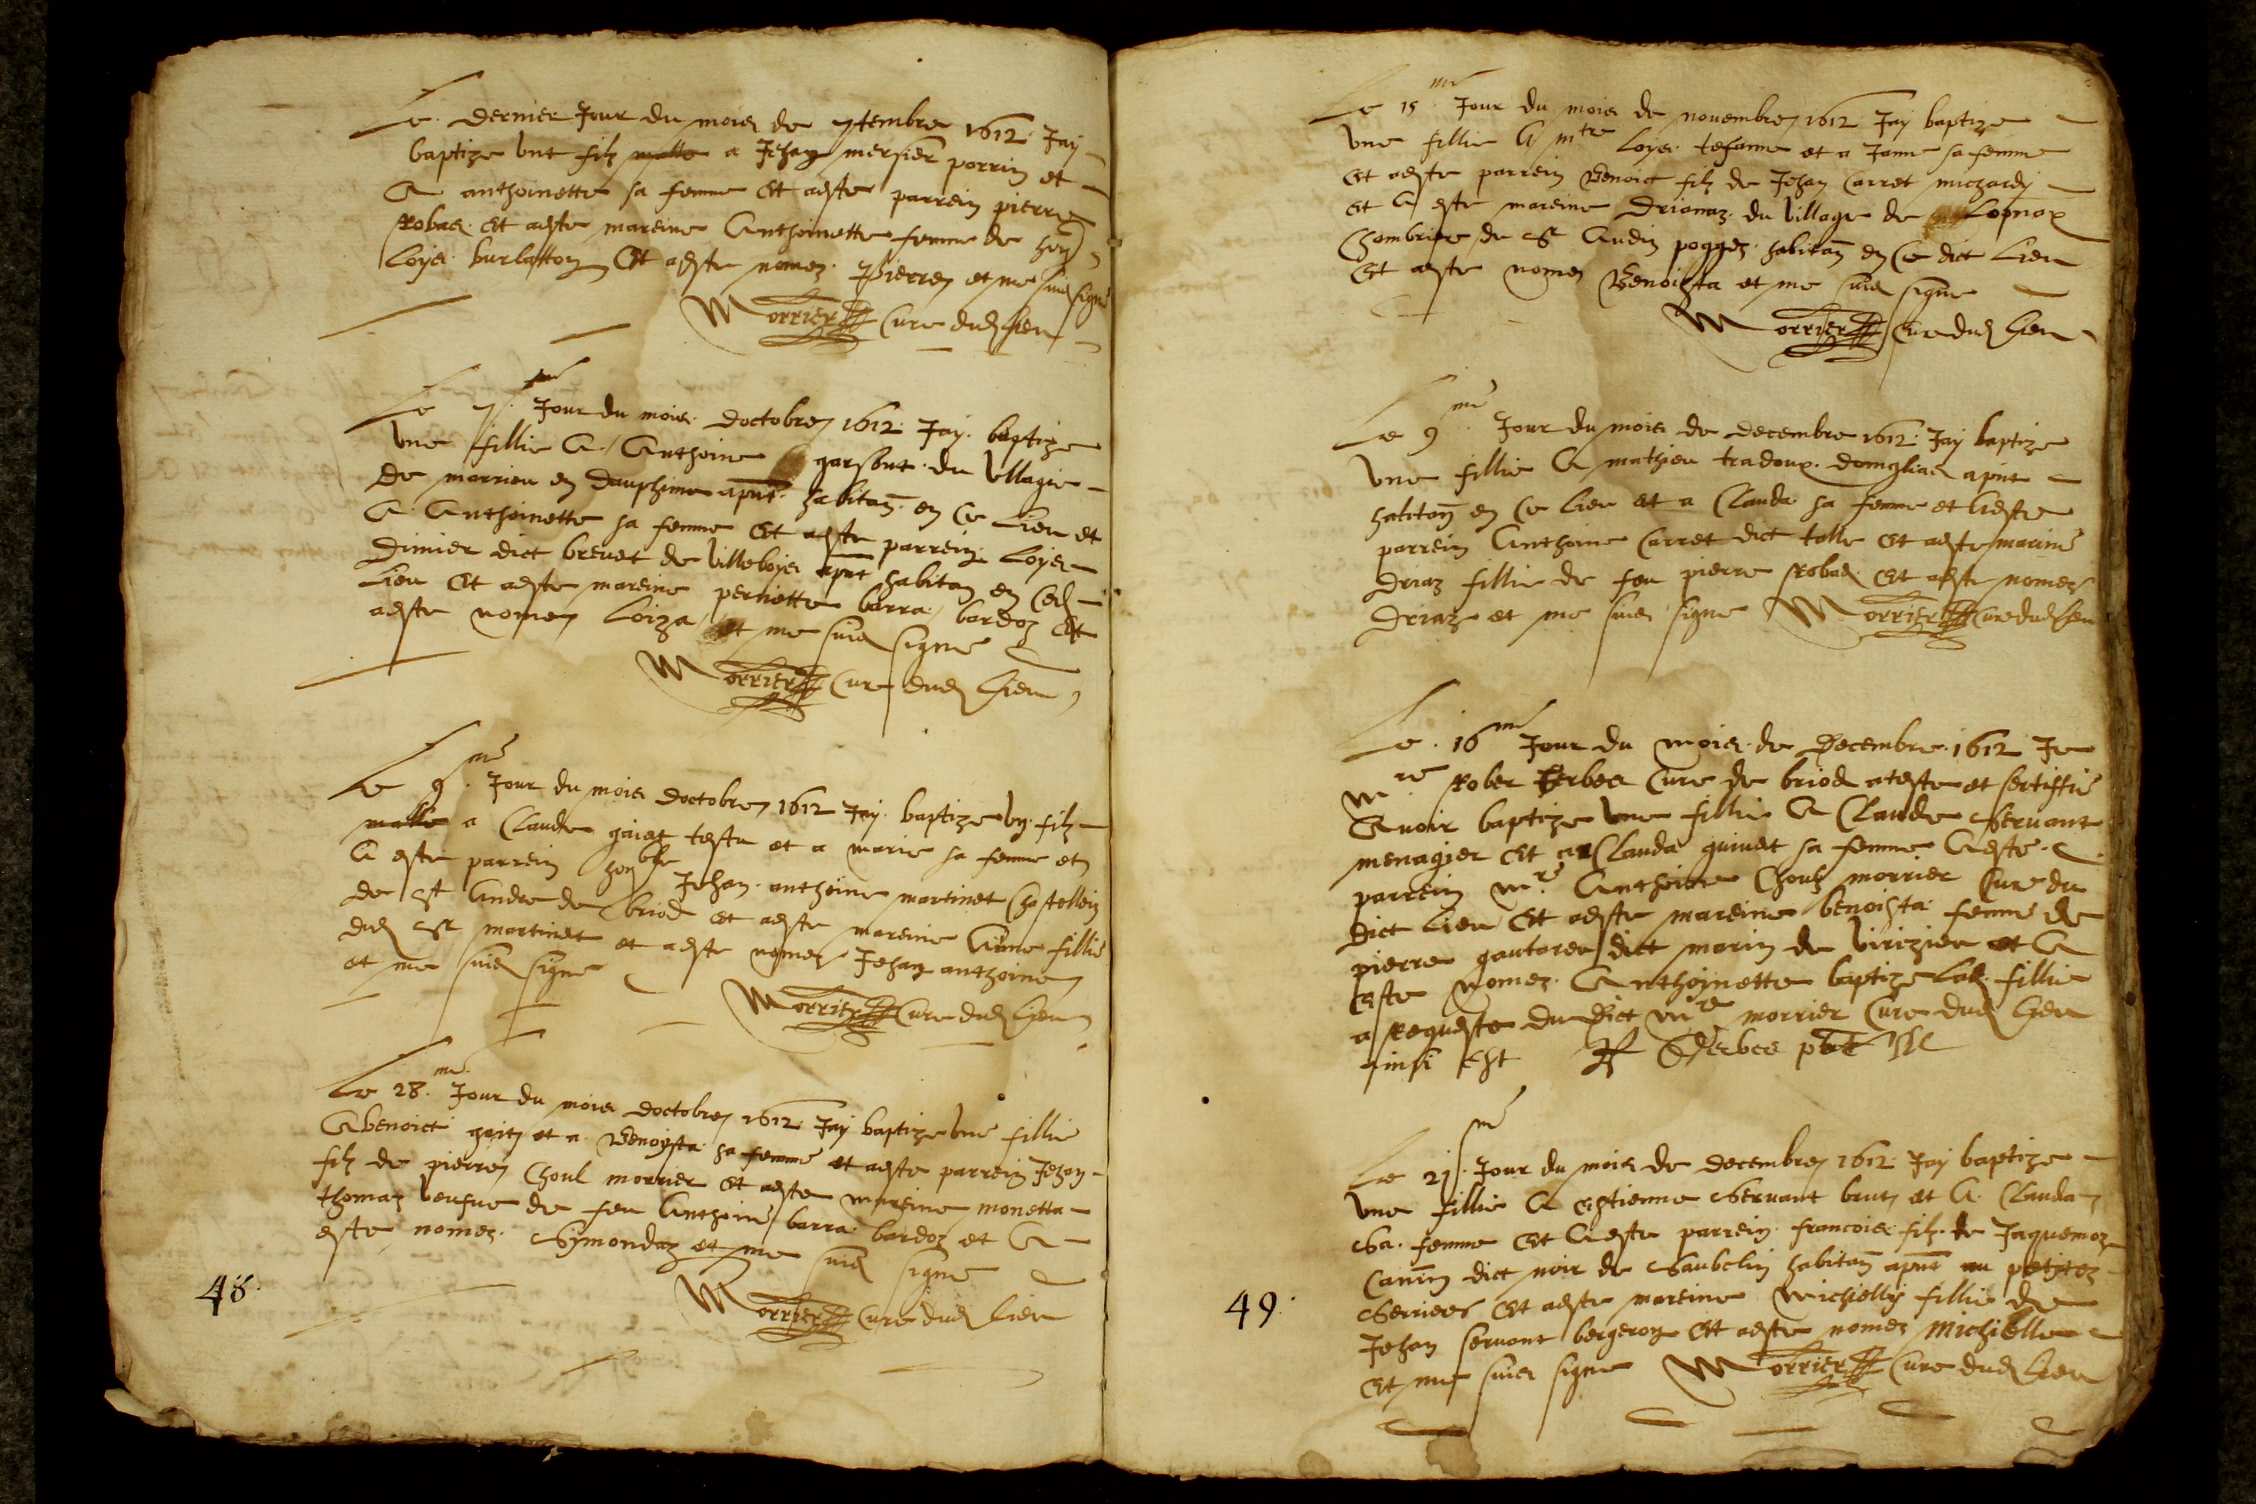 Le dernier Jour du mois de 7tembre 1612 Jay
baptize unt filz malle a Jehan mersier porrin et
A anthoinette sa femme Et aeste parrein pierre
Robas Et aeste mareine Anthoinette femme de
Loys burlatton Et aeste nomez Pierre et me suis signe
Morrier Cure dud Lieu
Le 7 me Jour du mois doctobre 1612 Jay baptize
une fillie A Anthoine garsont du vllagie
de morrieu en dauphine apnt habitan en ce Lieu et
A Anthoinette sa femme Et aeste parrein Loys
dimier dict brevet de villeboys apnt habitan en Ced
Lieu Et aeste mareine pernette barra bardoz Et
aeste nomez Loiza et me suis signe
Morrier Cure dud Lieu
Le 9 me Jour du mois doctobre 1612 Jay baptize un filz
malle a Claude testu et a marie sa femme et
A este parrein honble Jehan anthoine martinet Chastellein
de St Andre de briod et aeste mareine Anne fillie
dud Sr martinet et aeste nomez Jehan anthoine
et me suis signe
Morrier Cure dud Lieu
Le 28 me Jour du mois doctobre 1612 Jay baptize une fillie
A benoict et a Benoysta sa femme et aeste parrein Jehan
filz de pierre Choul morrier Et aeste mareine monetta
thomaz veufue de feu Anthoine barra bardoz et A
este nomez Symondaz et me suis signe
Morrier Cure dud Lieu
48
Le 15 me Jour du mois de novembre 1612 Jay baptize
une fillie A mtre Loys tehanne et a Janne sa femme
Et aeste parrein Benoict filz de Jehan Carret michardz
et A este mareine Drianaz du village de Lopnax
Chombriere de Sr Audin pogges habitan en Ce dict Lieu
Et aeste nomez Benoizta et me suis signe
Morrier Cure dud Lieu
Le 9 me Jour du mois de decembre 1612 Jay baptize
une fillie A mathieu tradoux domglias apnt
habitan en Ce lieu et a Clauda sa femme et Aeste
parrein Anthoine Carret dict tolle Et aeste marine
Driaz fillie de feu pierre Robas Et aeste nomez
Driaz et me suis signe Morrier Cure dud Lieu
Le 16 me Jour du mois de Decembre 1612 Je
mre Rober Cure de briod ateste et sertiffie
Avoir baptize une fillie A Claude Servant
menagier Et a Clauda guinet sa femme Aeste
parrein mre Anthoine Choul morrier Cure du
dict Lieu Et aeste mareine benoista femme de
pierre gautaren dict marin de virizieu et A
este nomez Anthoinette baptize lad fillie
a Requeste du Dict mre morrier Cure dud Lieu
ainsi est
Le 21 me Jour du mois de decembre 1612 Jay baptize
une fillie A Estienne Servant brun et A Clauda
Sa femme Et Aeste parrein francois filz de Jaquemoz
Canin dict noir de Saubelin habitan apnt au petitez
Serrieres Et aeste mareine michelly fillie de
Jehan servant bergeron Et aeste nomez michielle
Et me suis signe Morrier Cure dud Lieu
49